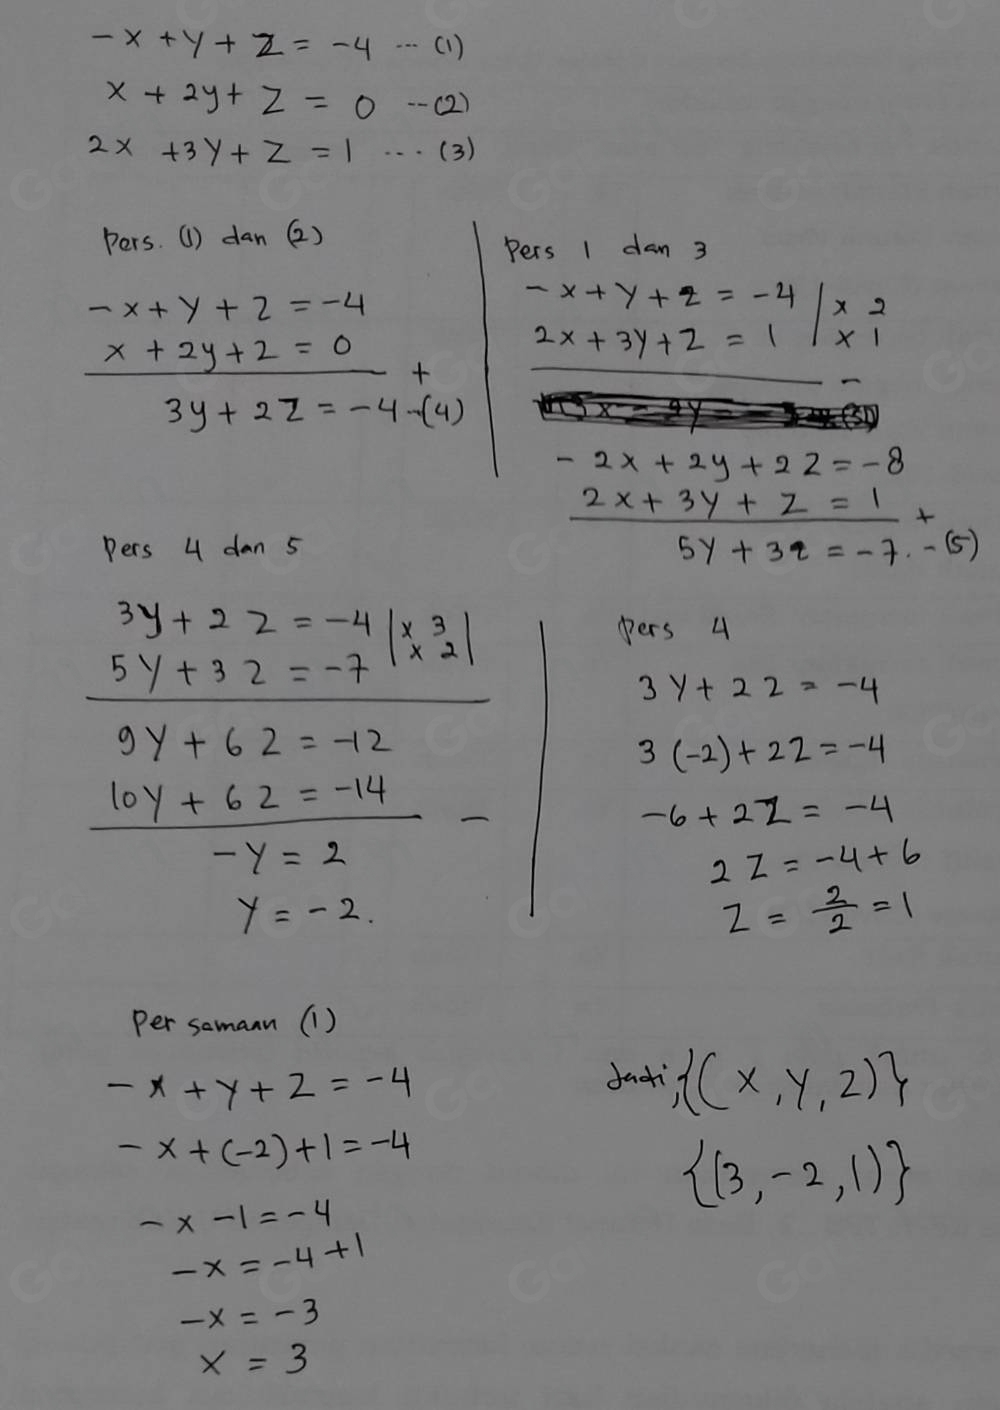 -x + y + z = -4 ... (1)
x + 2y + z = 0 ... (2)
2x + 3y + z = 1 ... (3)
Pers. (1) dan (2)
-x + y + z = -4
x + 2y + z = 0
+
3y + 2z = -4 ... (4)
Pers 1 dan 3
-x + y + z = -4 | x 2
2x + 3y + z = 1 | x 1
-
-2x + 2y + 2z = -8
2x + 3y + z = 1
+
5y + 3z = -7 ... (5)
Pers 4 dan 5
3y + 2z = -4 | x 3 |
5y + 3z = -7 | x 2 |
9y + 6z = -12
10y + 6z = -14
-
-y = 2
y = -2.
Pers 4
3y + 2z = -4
3(-2) + 2z = -4
-6 + 2z = -4
2z = -4 + 6
z = 2/2 = 1
Persamaan (1)
-x + y + z = -4
-x + (-2) + 1 = -4
-x - 1 = -4
-x = -4 + 1
-x = -3
x = 3
Jadi, {(x, y, z)}
{(3, -2, 1)}